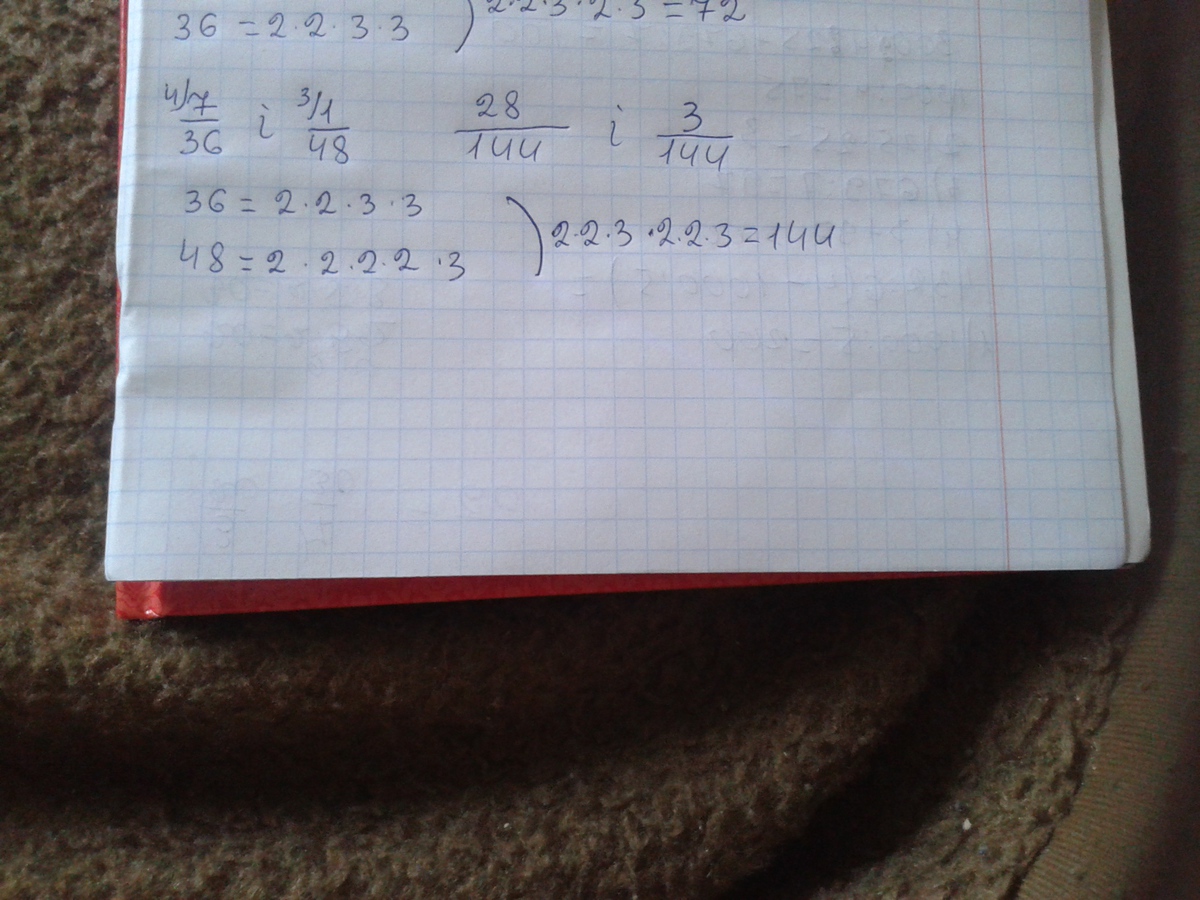 36 = 2·2·3·3 ) 2·2·3·2·3 = 72
4/7/36 і 3/1/48 28/144 і 3/144
36 = 2·2·3·3
48 = 2·2·2·2·3 ) 2·2·3·2·2·3 = 144